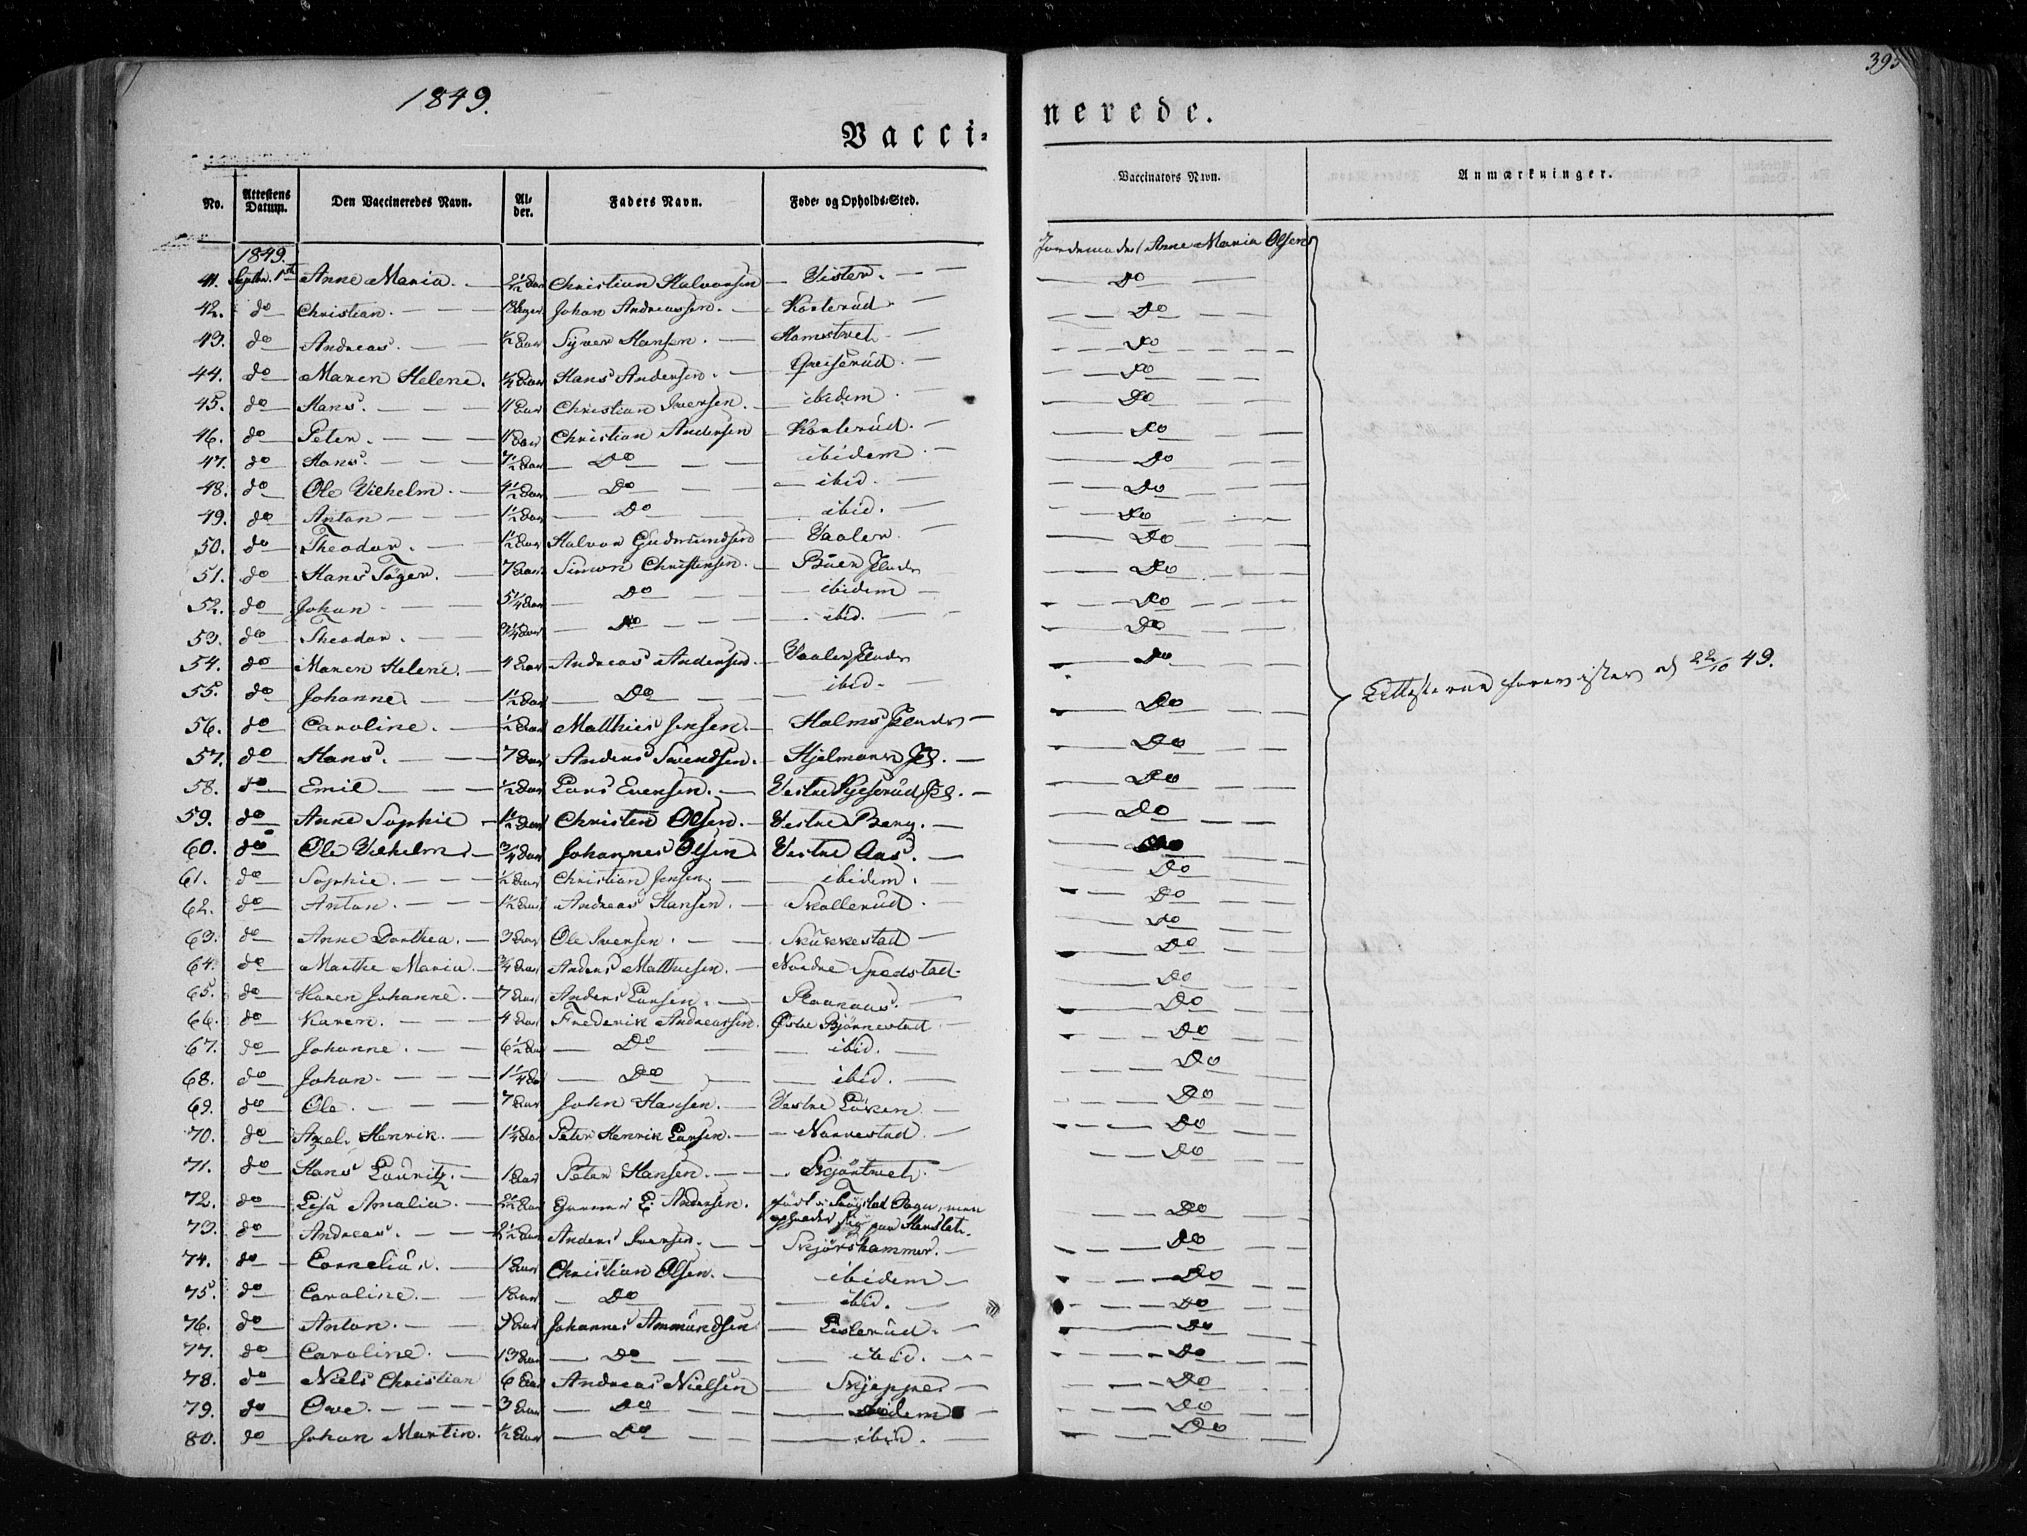 1849.
395
Vacci=
nerede.
No. | Attestens Datum. | Den Vaccineredes Navn. | Al-der. | Faders Navn. | Føde- og Opholds-Sted. | Vaccinators Navn. | Anmærkninger.
1849. | Jordemoder Anne Maria Olsen
41. Septbr. 1ste Anne Maria. 2½ Aar Christian Halvorsen Vister. Do
42. do Christian. Johan Andreassen. Korterud Do
43. do Andreas. ½ Aar Syver Hansen. Hamstvet Do
44. do Maren Helene. ¼ Aar Hans Andersen. Do
45. do Hans. 1 Aar Christian Iversen. ibidem. Do
46. do Peter. Christian Andersen Korterud. Do
47. do Hans. 7½ Aar Do ibidem. Do
48. do Ole Vilhelm. 4½ Aar Do ibid. Do
49. do Anton 1½ Aar Do ibid. Do
50. do Theodor. 1½ Aar Halvor Gudmundsen Vaaler. Do
51. do Hans Töger. 7 Aar Simon Christensen. Büer Do
52. do Johan 5¼ Aar Do ibidem Do
53. do Theodor. 3¼ Aar Do ibid. Do
54. do Maren Helene. 4 Aar Andreas Andersen. Vaaler Do
55. do Johanne. 1½ Aar Do ibid. Do
56. do Caroline. ½ Aar Matthies Jensen. Holms Do
57. do Hans. 7 Aar Anders Svendsen. Do
58. do Emil ½ Aar Lars Evensen. Vestre Do
59. do Anne Sophie 1½ Aar Christen Olsen. Vestre Berg. Do
60. do Ole Vilhelm. ¾ Aar Johannes Olsen Vestre Aas. Do
61. do Sophie. ½ Aar Christian Jensen. ibidem. Do
62. do Anton. 1½ Aar Andreas Hansen. Skollerud. Do
63. do Anne Dorthea. 3 Aar Ole Iversen. Skükkestad Do
64. do Marthe Maria. ¾ Aar Anders Matthiesen. Nordre Spedstad. Do
65. do Karen Johanne. 7 Aar Anders Larsen. Do
66. do Karen. 4 Aar Frederik Andreassen. Østre Bjørnestad Do
67. do Johanne. 6½ Aar Do ibid. Do
68. do Johan. 1¼ Do ibid. Do
69. do Ole. 7 Aar John Hansen. Vestre Löken Do
70. do Axel Henrik. 1¼ Aar Peter Henrik Larsen. Narvestad. Do
71. do Hans Lauritz. 1 Aar Peter Hansen. Skjörtvet. Do
72. do Lisa Amalia. 2½ Aar Gunner E. Andersen. født i Trögstad Sogn, men Do
opholder sig paa Henstet.
73. do Andreas. 2½ Aar Anders Iversen. Skjörshammer. Do
74. do Cornelius. 1 Aar Christian Olsen. ibidem Do
75. do Caroline. Do ibid. Do
76. do Anton. 9 Aar Johannes Ammundsen Listerud. Do
77. do Caroline. 13 Aar Do ibid. Do
78. do Niels Christian 6 Aar Andreas Nielsen Skjepper Do
79. do Ove. 3 Aar Do ibidem Do
80. do Johan Martin. ½ Aar Do ibid. Do
Attesterne forevister d 22/10 49.